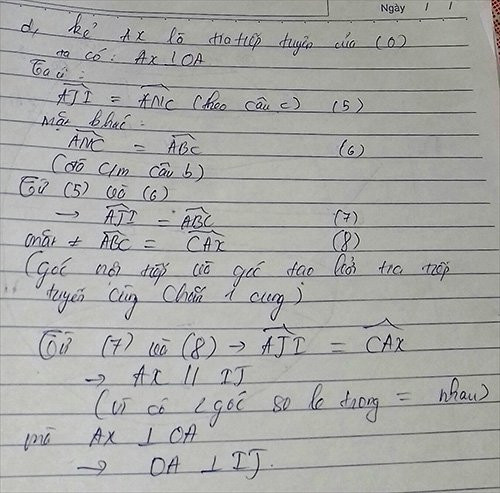 Ngày / /
d, kẻ Ax là tia tiếp tuyến của (O)
ta có: Ax ⊥ OA
Ta có:
AJI = ANC (theo câu c) (5)
mặt khác:
ANC = ABC (6)
(đã c/m câu b)
Từ (5) và (6)
→ AJI = ABC (7)
mặt ≠ ABC = CAx (8)
(góc nội tiếp và góc tạo bởi tia tiếp
tuyến cùng chắn 1 cung)
Từ (7) và (8) → AJI = CAx
→ Ax // IJ
(vì có 2 góc so le trong = nhau)
mà Ax ⊥ OA
→ OA ⊥ IJ.